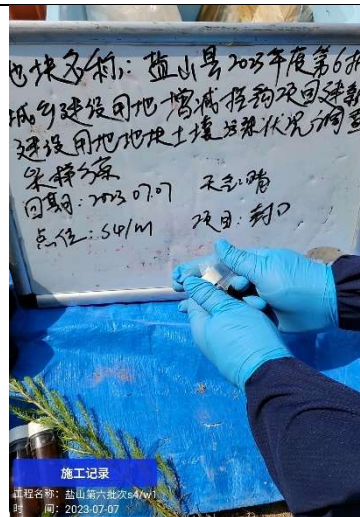 地块名称：盐山县2023年度第6批
城乡建设用地增减挂钩项目建新
建设用地地块土壤污染状况调查
采样方案
日期：2023.07.07 天气：晴
点位：S4/W1 项目：封口
施工记录
工程名称：盐山第六批次s4/w1
时 间：2023-07-07